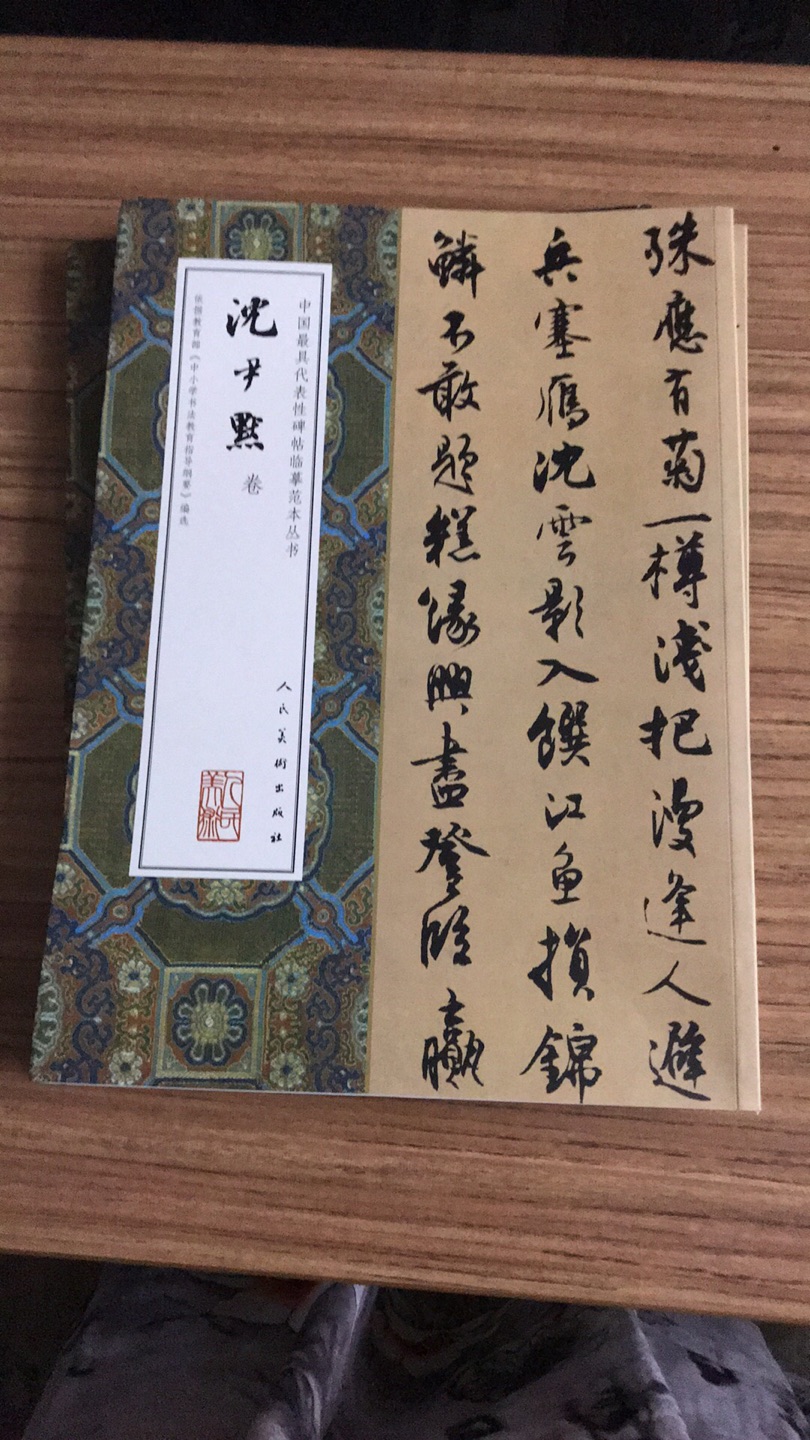 殊應有菊一樽淺把漫逢人避
兵塞雁沈雲影入饌江魚損錦
鱗不敢題糕緣興盡登臨嬴
中国最具代表性碑帖临摹范本丛书
沈尹默 卷
依据教育部《中小学书法教育指导纲要》编选
人民美術出版社
人民美術